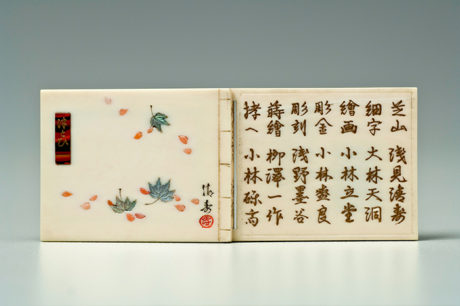 芝山 浅見清寿
細字 大林天洞
繪画 小林立堂
彫金 小林良
彫刻 浅野墨谷
蒔繪 柳澤一作
拵へ 小林高
清寿